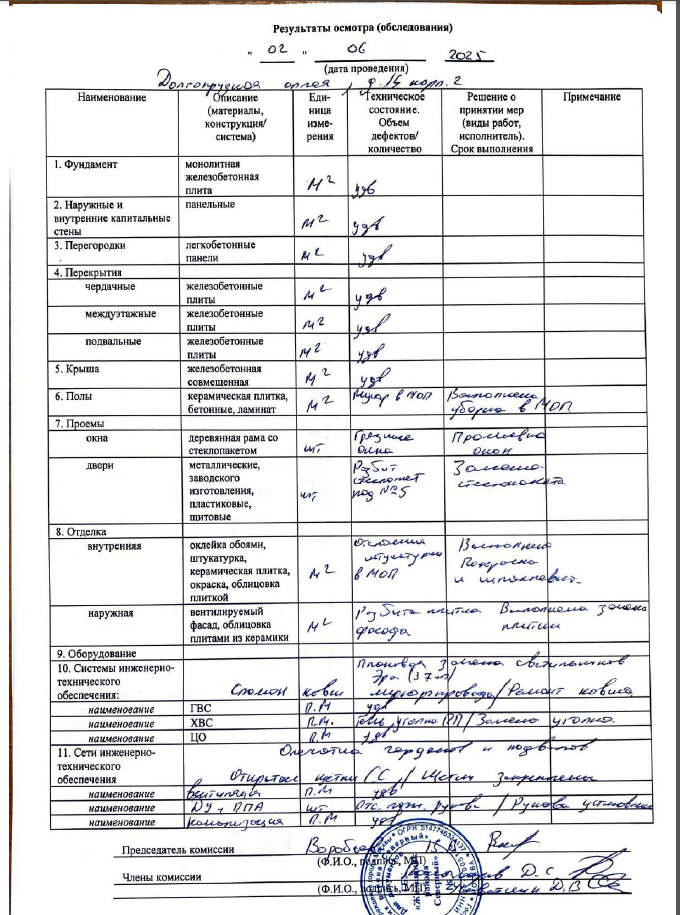 Результаты осмотра (обследования)
" 02 " 06 2025
(дата проведения)
Долгопрудная аллея, д. 15 корп. 2
Наименование Описание (материалы, конструкция/ система) Еди- ница изме- рения Техническое состояние. Объем дефектов/ количество Решение о принятии мер (виды работ, исполнитель). Срок выполнения Примечание
1. Фундамент монолитная железобетонная плита м2 удв
2. Наружные и внутренние капитальные стены панельные м2 удв
3. Перегородки легкобетонные панели м2 удв
4. Перекрытия
чердачные железобетонные плиты м2 удв
междуэтажные железобетонные плиты м2 удв
подвальные железобетонные плиты м2 удв
5. Крыша железобетонная совмещенная м2 удв
6. Полы керамическая плитка, бетонные, ламинат м2 Мусор в МОП Выполнена уборка в МОП
7. Проемы
окна деревянная рама со стеклопакетом шт Грязные окна Промывка окон
двери металлические, заводского изготовления, пластиковые, щитовые шт Разбит стеклопакет под №5 Замена стеклопакета
8. Отделка
внутренняя оклейка обоями, штукатурка, керамическая плитка, окраска, облицовка плиткой м2 Отслоение штукатурки в МОП Выполнена Покраска и
наружная вентилируемый фасад, облицовка плитами из керамики м2 Разбита плитка фасада Выполнена замена плитки
9. Оборудование
10. Системы инженерно-технического обеспечения: Плановая замена светильников Эра (37шт)
Сломан ковш мусоропровода/Ремонт ковша
наименование ГВС П.М удв
наименование ХВС П.М. Течь уголка / Замена уголка
наименование ЦО П.М удв
11. Сети инженерно-технического обеспечения и подвалов
Открытые щитки СС / Щитки закреплены
наименование вентиляция П.М удв
наименование ДУ и ППА шт Отс. пож. рукава / Рукава установлены
наименование канализация П.М удв
Председатель комиссии
(Ф.И.О., подпись, МП)
Члены комиссии
(Ф.И.О., подпись, МП)